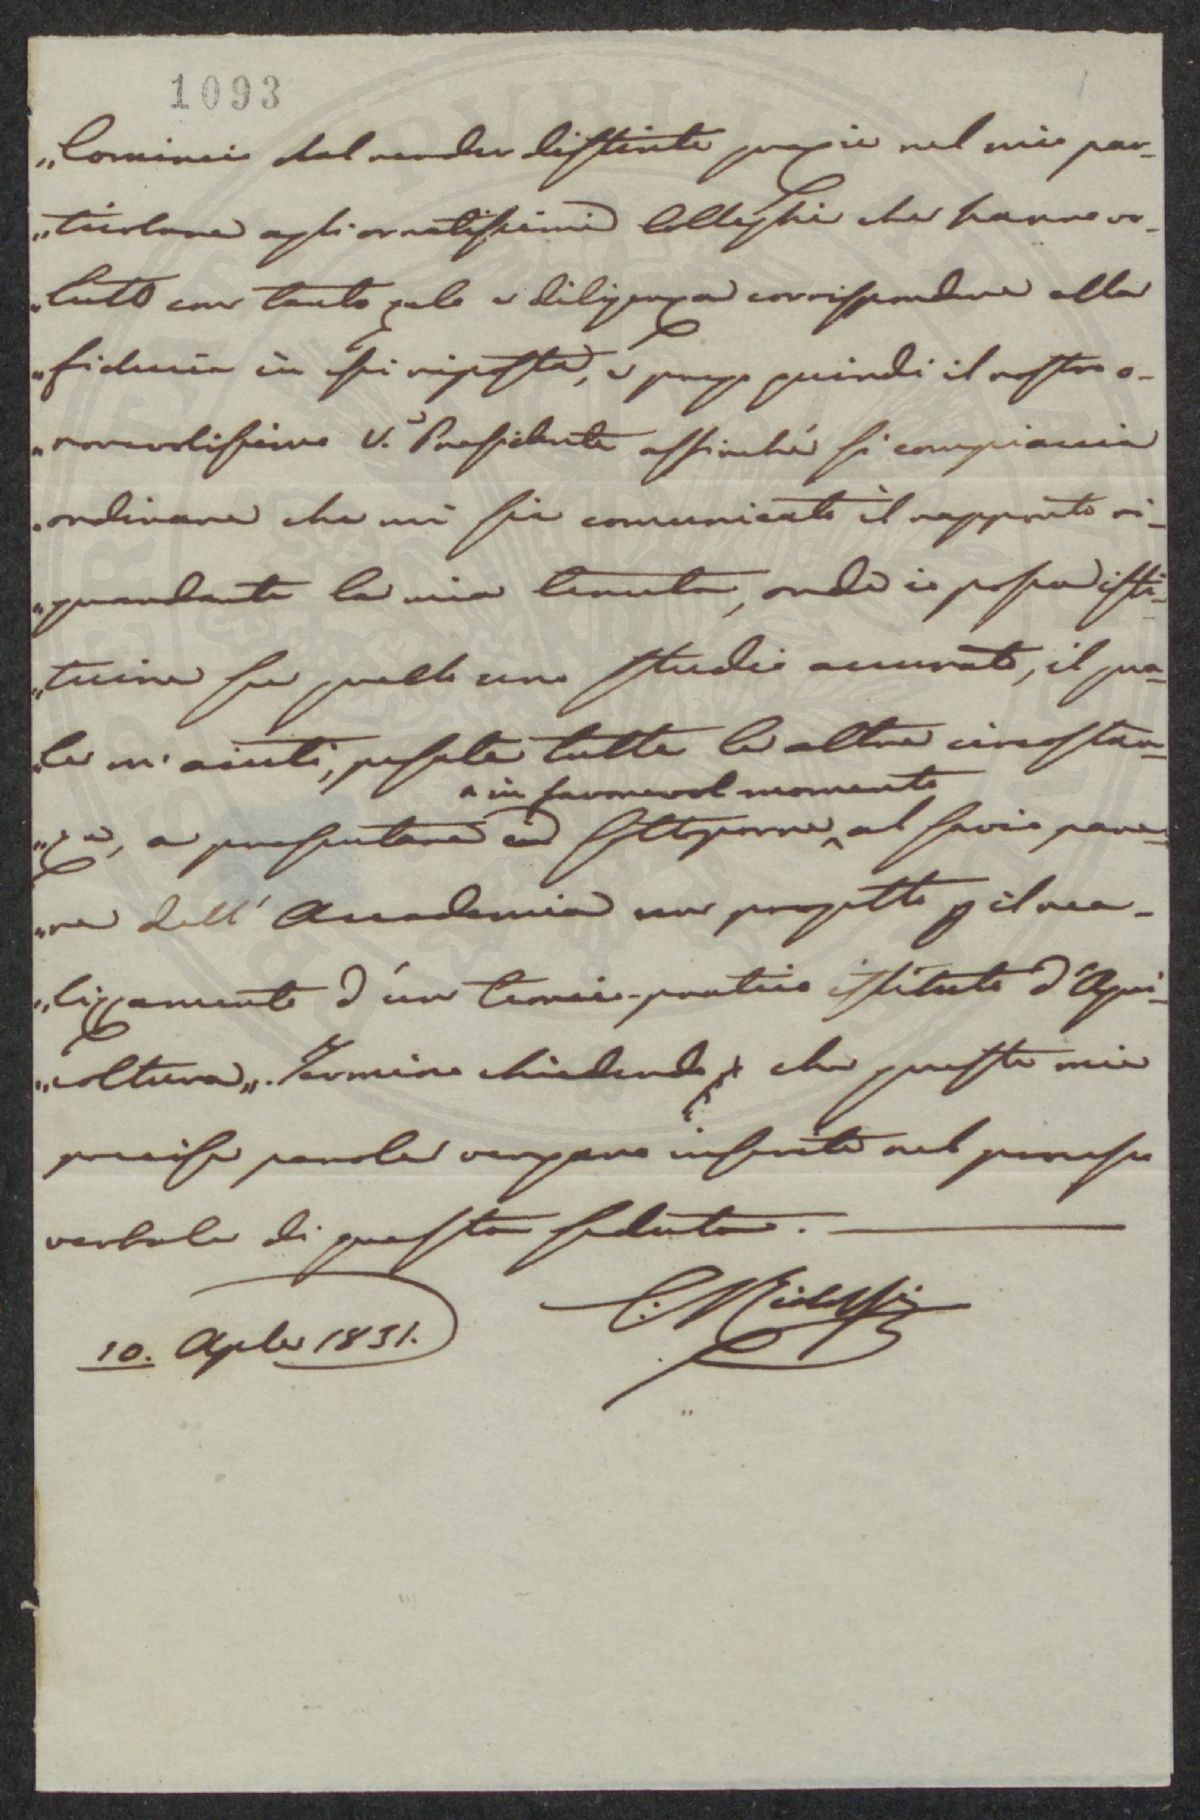 1093
„Comincio dal render distinte grazie nel mio par-
„ticolare agli ornatissimi Colleghi che hanno vo-
„luto con tanto zelo e diligenza corrispondere alla
„fiducia in essi riposta, e prego quindi il nostro o-
„norevolissimo V.e Presidente affinché si compiaccia
„ordinare che mi sia comunicato il rapporto ri-
„guardante la mia tenuta, onde io possa isti-
„tuire su quello uno studio accurato, il qua-
„le m'aiuti, pesate tutte le altre circostan-
e in favorevol momento
„ze, a presentare ed sottoporre al savio pare-
„re dell'Accademia un progetto p il rea-
„lizzamento d'un teorico-pratico istituto d'Agri-
„coltura„. Termino chiedendo che queste mie
precise parole vengano inserite nel processo
verbale di questa seduta.
C. Ridolfi
10. Aple 1831.